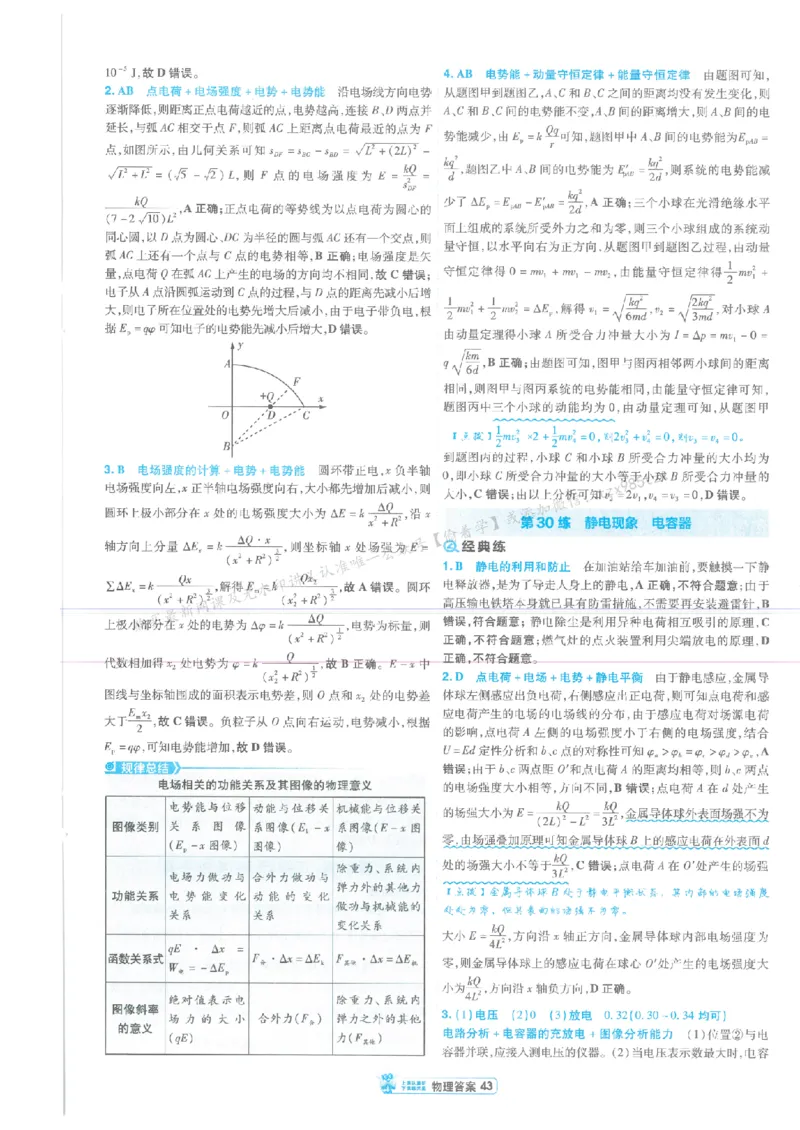 10⁻⁵ J,故 D 错误。
2. AB 点电荷+电场强度+电势+电势能 沿电场线方向电势
逐渐降低,则距离正点电荷越近的点,电势越高.连接 B、D 两点并
延长,与弧 AC 相交于点 F,则弧 AC 上距离点电荷最近的点为 F
点,如图所示,由几何关系可知 s_DF = s_BC − s_BD = √(L²+(2L)²) −
√(L²+L²) = (√5 − √2) L,则 F 点的电场强度为 E = kQ/s²_DF =
kQ/((7−2√10)L²),A 正确;正点电荷的等势线为以点电荷为圆心的
同心圆,以 D 点为圆心、DC 为半径的圆与弧 AC 还有一个交点,则
弧 AC 上还有一个点与 C 点的电势相等,B 正确;电场强度是矢
量,点电荷 Q 在弧 AC 上产生的电场的方向均不相同,故 C 错误;
电子从 A 点沿圆弧运动到 C 点的过程,与 D 点的距离先减小后增
大,则电子所在位置处的电势先增大后减小,由于电子带负电,根
据 E_p = qφ 可知电子的电势能先减小后增大,D 错误。
y
A
F
+Q
x
O
D
C
B
3. B 电场强度的计算+电势+电势能 圆环带正电,x 负半轴
电场强度向左,x 正半轴电场强度向右,大小都先增加后减小,则
圆环上极小部分在 x 处的电场强度大小为 ΔE = k ΔQ/(x²+R²),沿 x
轴方向上分量 ΔE_x = k ΔQ·x/(x²+R²)^(3/2),则坐标轴 x 处场强为 E =
∑ΔE_x = k Qx/(x²+R²)^(3/2),解得 E_m = k Qx₂/(x₂²+R²)^(3/2),故 A 错误。圆环
上极小部分在 x 处的电势为 Δφ = k ΔQ/(x²+R²)^(1/2),电势为标量,则
代数相加得 x₂ 处电势为 φ = k Q/(x₂²+R²)^(1/2),故 B 正确。E−x 中
图线与坐标轴围成的面积表示电势差,则 O 点和 x₂ 处的电势差
大于 E_m x₂/2,故 C 错误。负粒子从 O 点向右运动,电势减小,根据
E_p = qφ,可知电势能增加,故 D 错误。
规律总结
电场相关的功能关系及其图像的物理意义
图像类别 电势能与位移关系图像(E_p−x 图像) 动能与位移关系图像(E_k−x 图像) 机械能与位移关系图像(E−x 图像)
功能关系 电场力做功与电势能变化关系 合外力做功与动能的变化关系 除重力、系统内弹力外的其他力做功与机械能的变化关系
函数关系式 qE·Δx = W_电 = −ΔE_p F_合·Δx = ΔE_k F_其他·Δx = ΔE_机
图像斜率的意义 绝对值表示电场力的大小(qE) 合外力(F_合) 除重力、系统内弹力之外的其他力(F_其他)
4. AB 电势能+动量守恒定律+能量守恒定律 由题图可知,
从题图甲到题图乙,A、C 和 B、C 之间的距离均没有发生变化,则
A、C 和 B、C 间的电势能不变,A、B 间的距离增大,则 A、B 间的电
势能减少,由 E_p = k Qq/r 可知,题图甲中 A、B 间的电势能为 E_pAB =
kq²/d,题图乙中 A、B 间的电势能为 E′_pAB = kq²/2d,则系统的电势能减
少了 ΔE_p = E_pAB − E′_pAB = kq²/2d,A 正确;三个小球在光滑绝缘水平
面上组成的系统所受外力之和为零,则三个小球组成的系统动
量守恒,以水平向右为正方向,从题图甲到题图乙过程,由动量
守恒定律得 0 = mv₁ + mv₁ − mv₂,由能量守恒定律得 1/2 mv₁² +
1/2 mv₁² + 1/2 mv₂² = ΔE_p,解得 v₁ = √(kq²/6md),v₂ = √(2kq²/3md),对小球 A
由动量定理得小球 A 所受合力冲量大小为 I = Δp = mv₁ − 0 =
q√(km/6d),B 正确;由题图可知,图甲与图丙相邻两小球间的距离
相同,则图甲与图丙系统的电势能相同,由能量守恒定律可知,
题图丙中三个小球的动能均为 0,由动量定理可知,从题图甲
【点拨】1/2 mv₃² ×2 + 1/2 mv₄² = 0,则2v₃² + v₄² = 0,则v₃ = v₄ = 0。
到题图丙的过程,小球 C 和小球 B 所受合力冲量的大小均为
0,即小球 C 所受合力冲量的大小等于小球 B 所受合力冲量的
大小,C 错误;由以上分析可知 v₂ = 2v₁,v₄ = v₃ = 0,D 错误。
第30练 静电现象 电容器
经典练
1. B 静电的利用和防止 在加油站给车加油前,要触摸一下静
电释放器,是为了导走人身上的静电,A 正确,不符合题意;由于
高压输电铁塔本身就已具有防雷措施,不需要再安装避雷针,B
错误,符合题意;静电除尘是利用异种电荷相互吸引的原理,C
正确,不符合题意;燃气灶的点火装置利用尖端放电的原理,D
正确,不符合题意。
2. D 点电荷+电场+电势+静电平衡 由于静电感应,金属导
体球左侧感应出负电荷,右侧感应出正电荷,则可知点电荷和感
应电荷产生的电场的电场线的分布,由于感应电荷对场源电荷
的影响,点电荷 A 左侧的电场强度小于右侧的电场强度,结合
U = Ed 定性分析和 b、c 点的对称性可知 φ_a > φ_b = φ_c > φ_d > φ_e,A
错误;由于 b、c 两点距 O′和点电荷 A 的距离均相等,则 b、c 两点
的电场强度大小相等,方向不同,B 错误;点电荷 A 在 d 处产生
的场强大小为 E = kQ/((2L)²−L²) = kQ/3L²,金属导体球外表面场强不为
零,由场强叠加原理可知金属导体球 B 上的感应电荷在外表面 d
处的场强大小不等于 kQ/3L²,C 错误;点电荷 A 在 O′处产生的场强
【点拨】金属导体球 B 处于静电平衡状态,其内部的电场强度
处处为零,但其表面的场强不为零。
大小 E = kQ/4L²,方向沿 x 轴正方向,金属导体球内部电场强度为
零,则金属导体球上的感应电荷在球心 O′处产生的电场强度大
小为 kQ/4L²,方向沿 x 轴负方向,D 正确。
3. (1)电压 (2)0 (3)放电 0.32(0.30~0.34 均可)
电路分析+电容器的充放电+图像分析能力 (1)位置②与电
容器并联,应接入测电压的仪器。(2)当电压表示数最大时,电容
物理答案 43